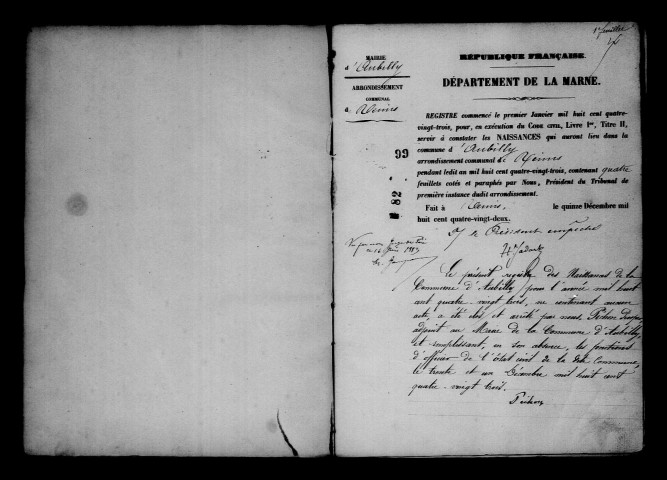 1er feuillet
MAIRIE
d'Aubilly
ARRONDISSEMENT
COMMUNAL
de Reims
99
82
RÉPUBLIQUE FRANÇAISE.
DÉPARTEMENT DE LA MARNE.
REGISTRE commencé le premier Janvier mil huit cent quatre-
vingt-trois, pour, en exécution du CODE CIVIL, Livre Ier, Titre II,
servir à constater les NAISSANCES qui auront lieu dans la
commune d'Aubilly
arrondissement communal de Reims
pendant ledit an mil huit cent quatre-vingt-trois, contenant quatre
feuillets cotés et paraphés par Nous, Président du Tribunal de
première instance dudit arrondissement.
Fait à Reims, le quinze Décembre mil
huit cent quatre-vingt-deux.
Président empêché
Le présent registre des Naissances de la
Commune d'Aubilly pour l'année mil huit
cent quatre-vingt trois, ne contenant aucun
acte, a été clos et arrêté par nous,
adjoint au Maire de la Commune d'Aubilly,
et remplissant, en son absence, les fonctions
d'officier de l'état civil de la dite Commune,
le trente et un Décembre mil huit cent
quatre-vingt trois.